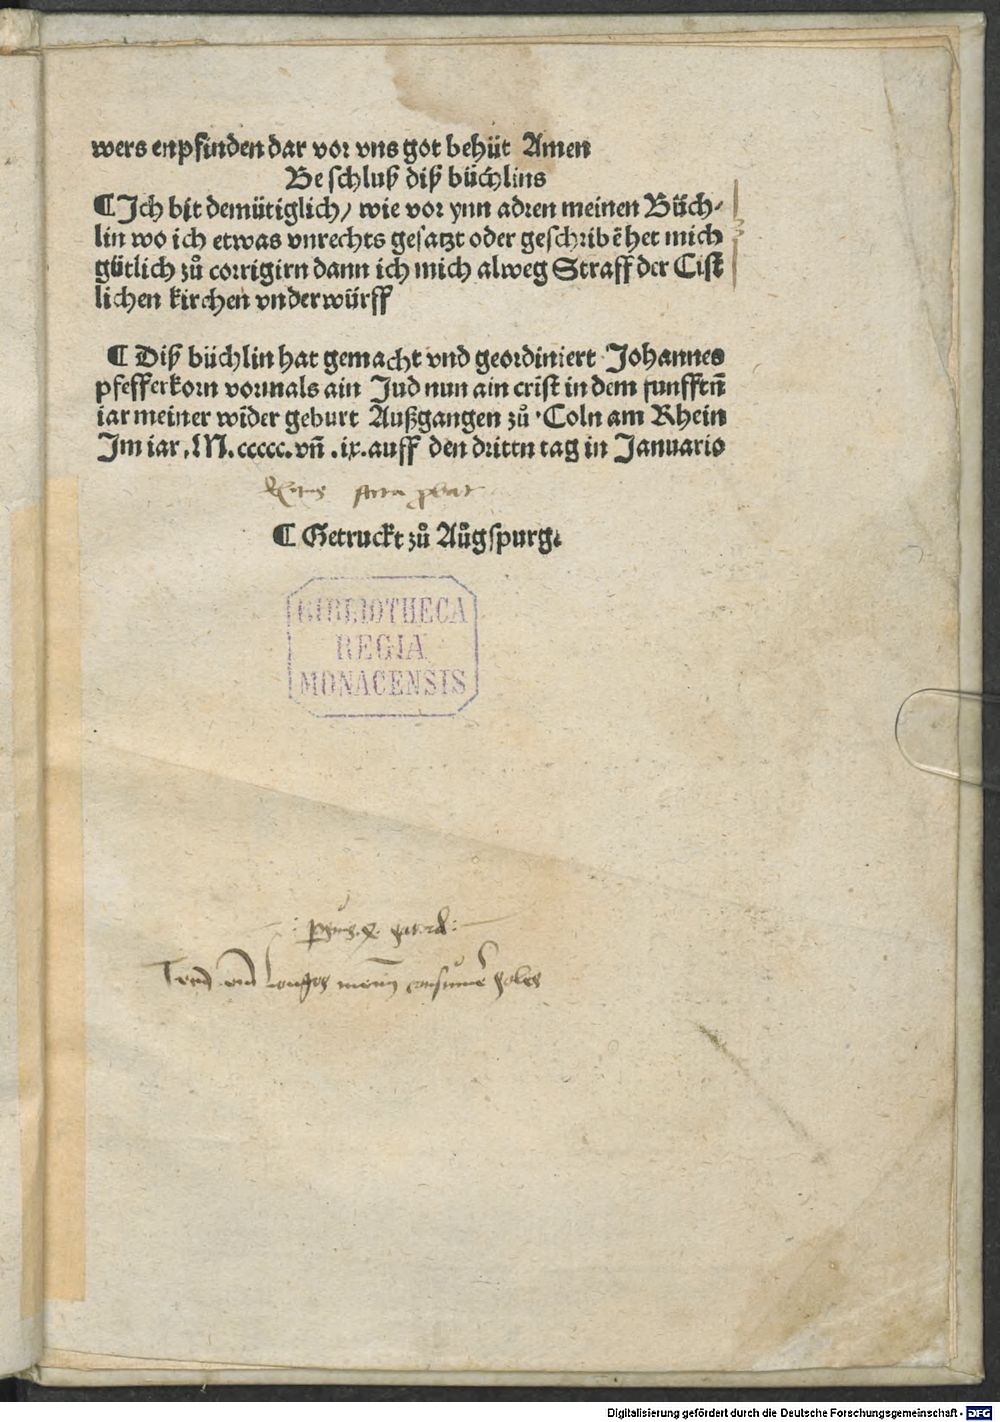 wers enpfinden dar vor vns got behüt Amen
Be schluß diß büchlins
¶ Ich bit demütiglich/ wie vor ynn adren meinen Büch⸗
lin wo ich etwas vnrechts gesatzt oder geschribē het mich
gütlich zů corrigirn dann ich mich alweg Straff der Cist
lichen kirchen vnderwürff
¶ Diß büchlin hat gemacht vnd geordiniert Johannes
pfefferkorn vormals ain Jud nun ain crist in dem funfftñ
iar meiner wider geburt Außgangen zů Coln am Rhein
Im iar. M. ccccc. vñ .ix. auff den drittn tag in Januario
Exitus acta probat
¶ Getruckt zů Augspurg.
BIBLIOTHECA
REGIA
MONACENSIS
longos consumere soles
Digitalisierung gefördert durch die Deutsche Forschungsgemeinschaft - DFG